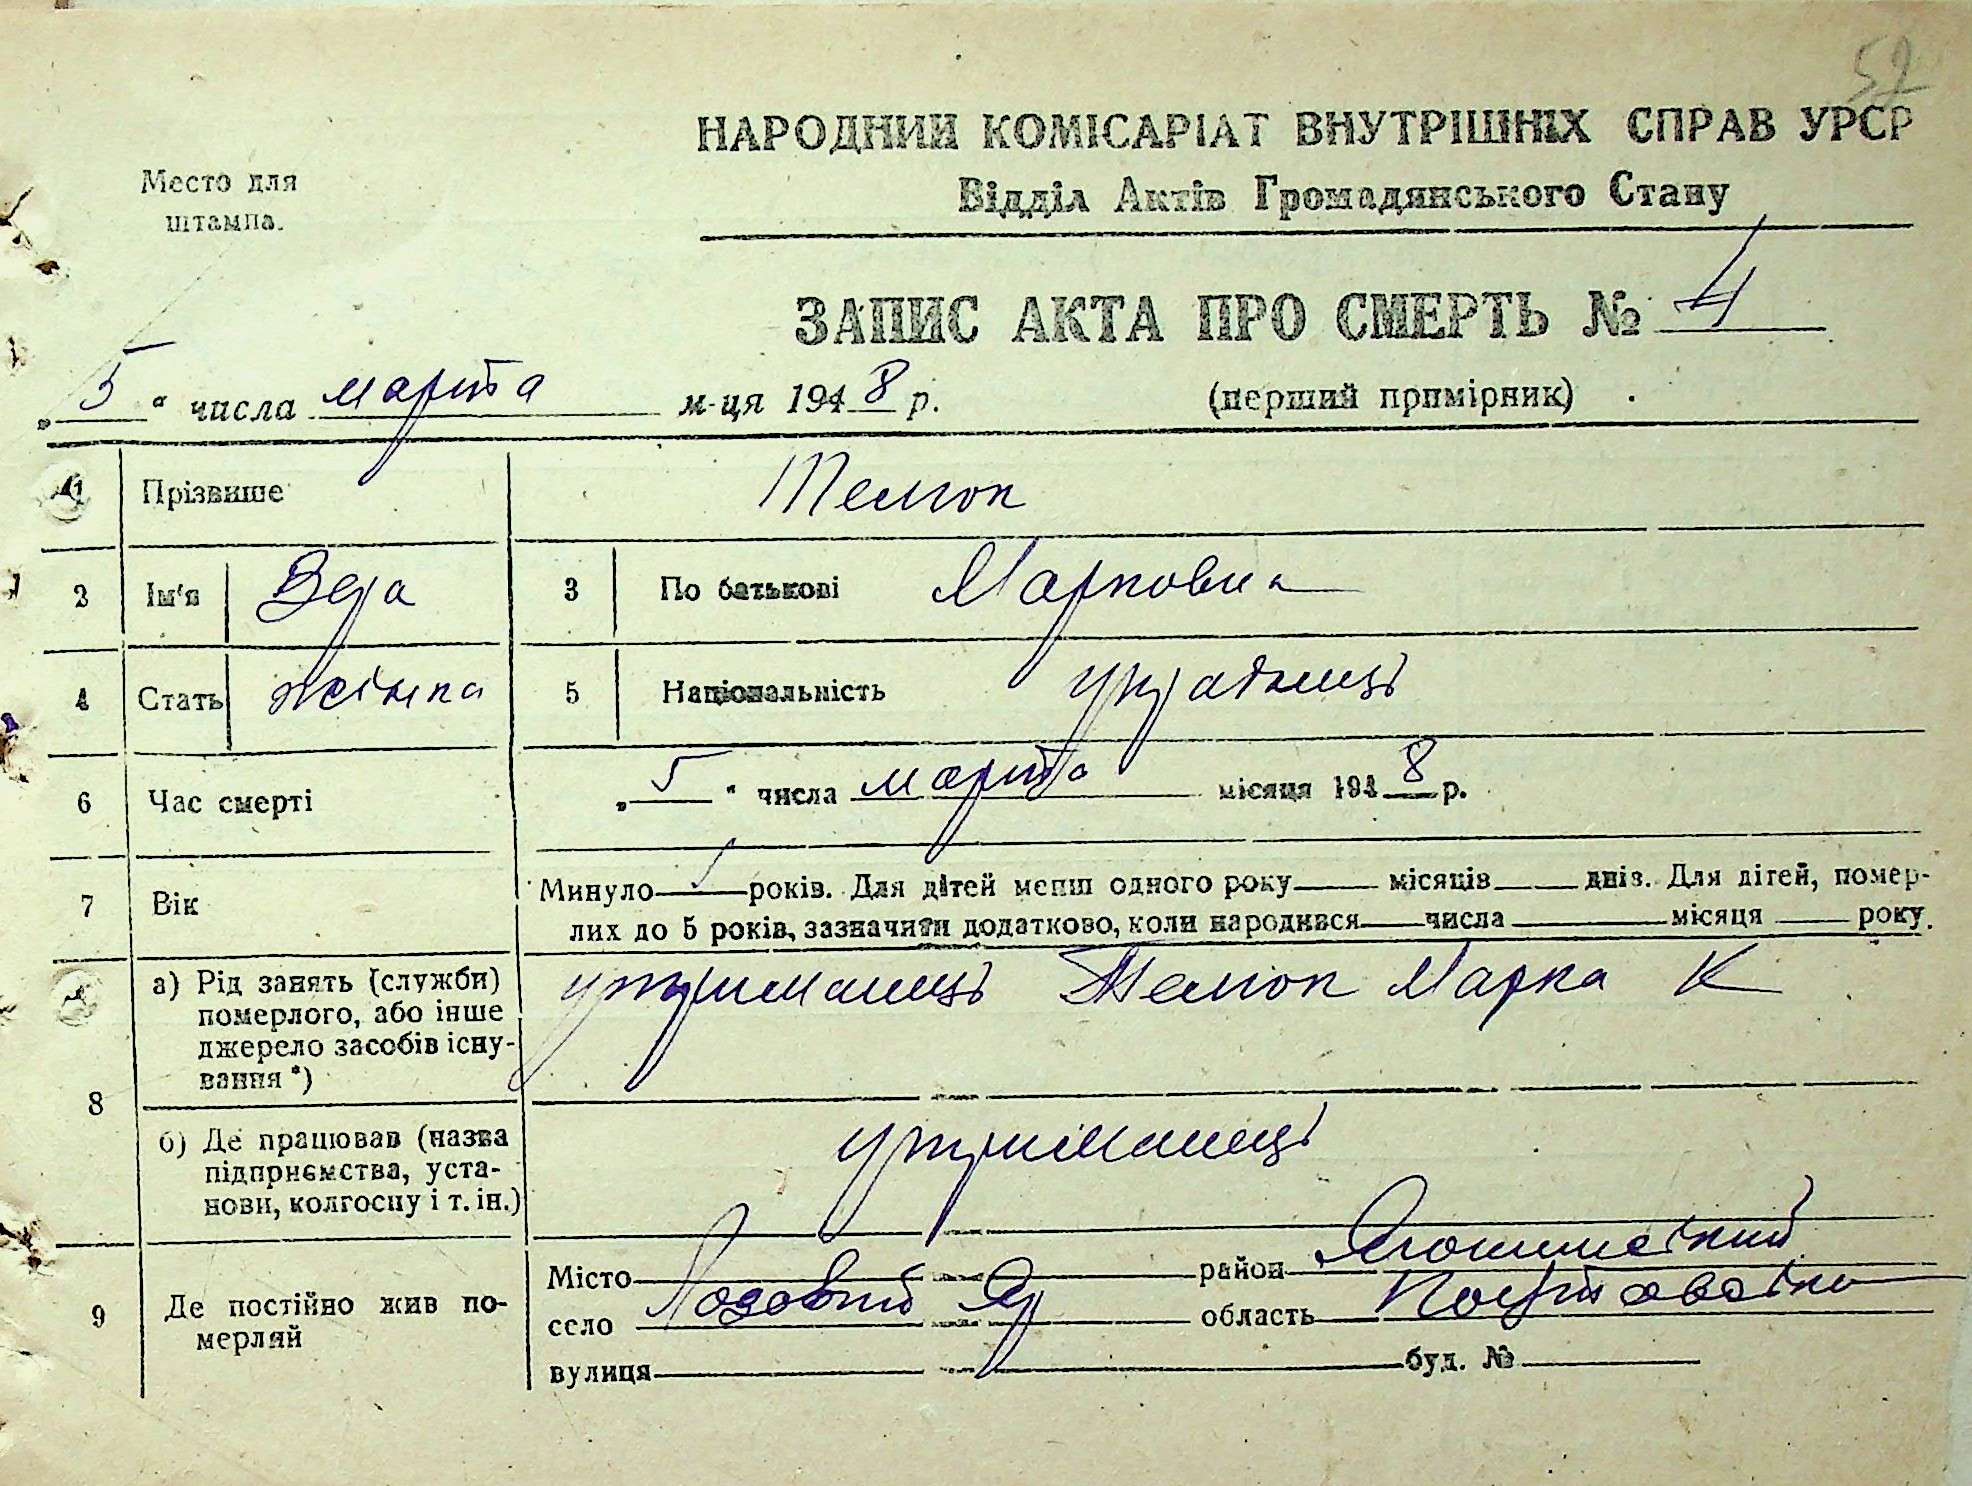 52
НАРОДНИЙ КОМІСАРІАТ ВНУТРІШНІХ СПРАВ УРСР
Место для
штампа.
Відділ Актів Громадянського Стану
ЗАПИС АКТА ПРО СМЕРТЬ № 4
„5“ числа марта м-ця 1948 р. (перший примірник)
1 Прізвише
2 Ім'я Вера 3 По батькові Марковна
4 Стать жінка 5 Національність
6 Час смерті „5“ числа марта місяця 1948 р.
7 Вік Минуло років. Для дітей менш одного року місяців днів. Для дітей, помер-
лих до 5 років, зазначити додатково, коли народився числа місяця року.
8 а) Рід занять (служби) Марка К
померлого, або інше
джерело засобів існу-
вання*)
б) Де працював (назва
підприємства, уста-
нови, колгоспу і т. ін.)
9 Де постійно жив по-
мерлий
Місто район
село Лозовий Яр область
вулиця буд. №